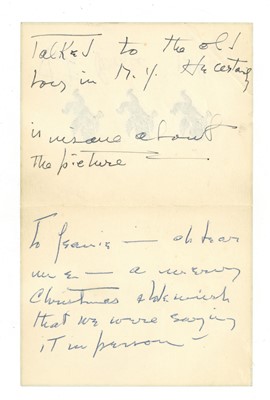 Talked to the old
boy in N.Y. He certainly
is insane about
the picture
To Jeanie — dear
— a merry
Christmas + wish
that we were saying
it in person —